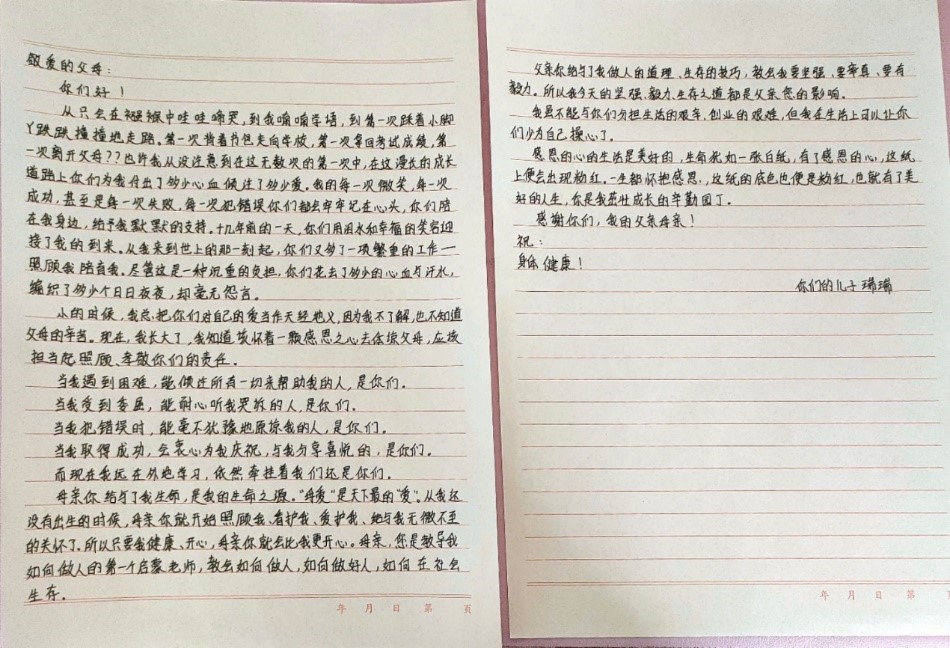 敬爱的父母：
你们好！
从只会在襁褓中哇哇啼哭，到我喃喃学语，到第一次跌着小脚
丫跌跌撞撞地走路。第一次背着书包走向学校，第一次拿回考试成绩，第
一次离开父母??也许我从没注意到在这无数次的第一次中，在这漫长的成长
道路上你们为我付出了多少心血倾注了多少爱。我的每一次微笑，每一次
成功，甚至是每一次失败、每一次犯错误你们都会牢牢记在心头，你们陪
在我身边，给予我默默的支持。十几年前的一天，你们用泪水和幸福的笑容迎
接了我的到来。从我来到世上的那一刻起，你们又多了一项繁重的工作—
照顾我陪育我。尽管这是一种沉重的负担，你们花去了多少的心血与汗水，
编织了多少个日日夜夜，却毫无怨言。
小的时候，我总把你们对自己的爱当作天经地义，因为我不了解，也不知道
父母的辛苦。现在，我长大了，我知道该怀着一颗感恩之心去体谅父母，应该
担当起照顾、孝敬你们的责任。
当我遇到困难，能倾注所有一切来帮助我的人，是你们。
当我受到委屈，能耐心听我哭诉的人，是你们。
当我犯错误时，能毫不犹豫地原谅我的人，是你们。
当我取得成功，会衷心为我庆祝，与我分享喜悦的，是你们。
而现在我远在外地学习，依然牵挂着我们还是你们。
母亲你给与了我生命，是我的生命之源。“母爱”是天下最的“爱”。从我还
没有出生的时候，母亲你就开始照顾我、看护我、爱护我、给与我无微不至
的关怀了。所以只要我健康、开心，母亲你就会比我更开心。母亲，您是教导我
如何做人的第一个启蒙老师，教会如何做人，如何做好人，如何在社会
生存。
年 月 日 第 页
父亲你给与了我做人的道理、生存的技巧，教会我要坚强、要率真、要有
毅力。所以我今天的坚强、毅力、生存之道都是父亲您的影响。
我虽不能与你们分担生活的艰辛、创业的艰难，但我在生活上可以让你
们少为自己操心了。
感恩的心的生活是美好的，生命犹如一张白纸，有了感恩的心，这纸
上便会出现粉红，一生都怀把感恩，这纸的底色也便是粉红，也就有了美
好的人生，你是我茁壮成长的辛勤园丁。
感谢你们，我的父亲母亲！
祝：
身体健康！
你们的儿子瑞瑞
年 月 日 第